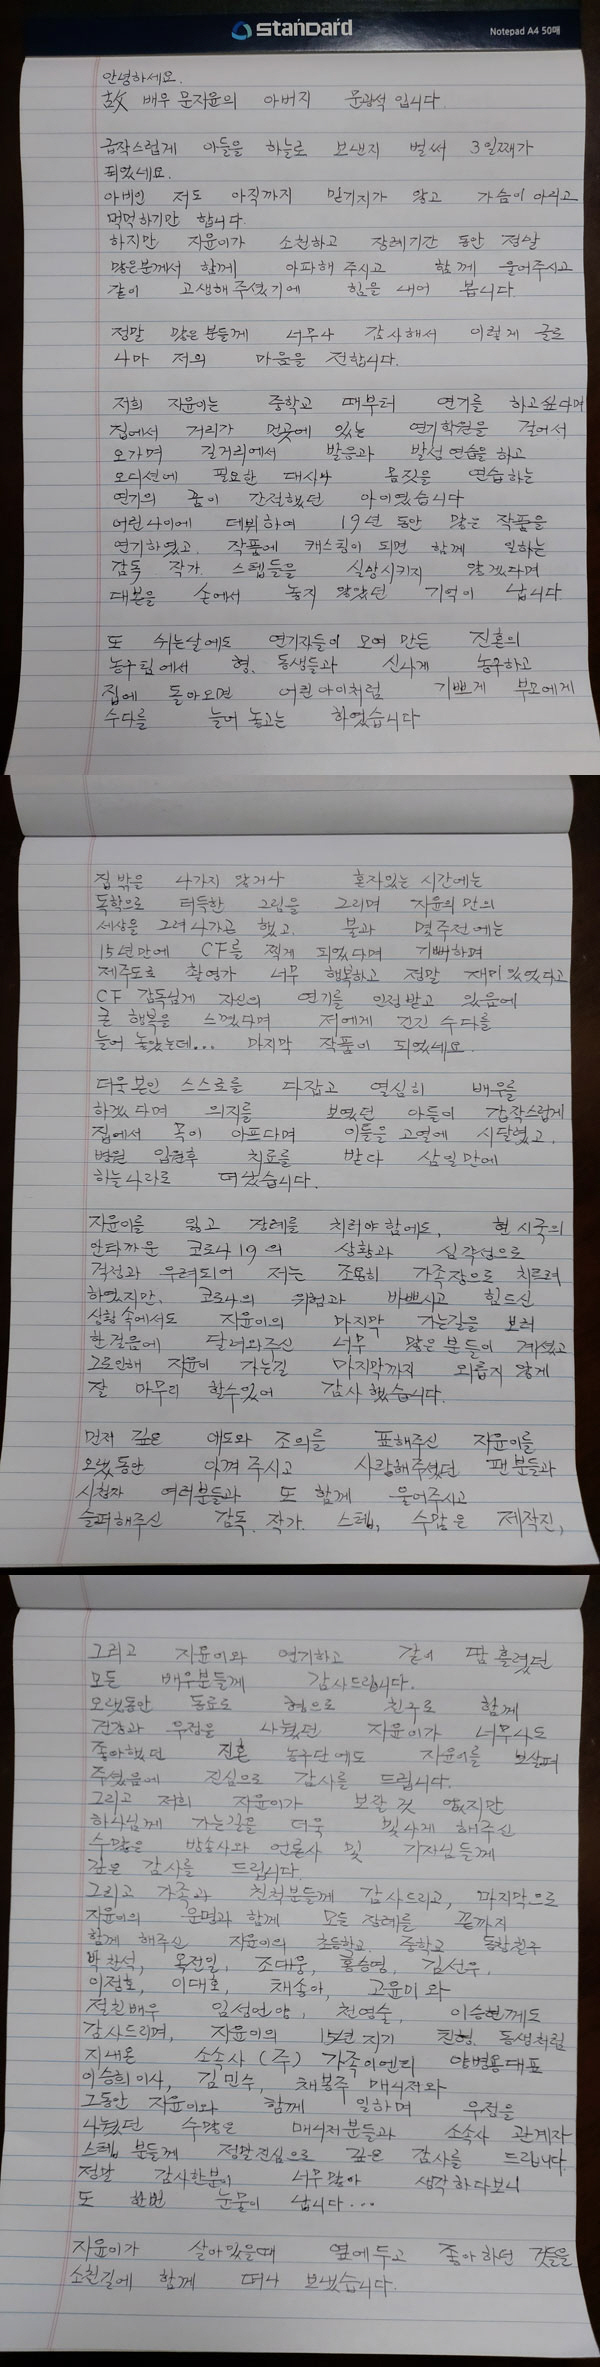 standard
Notepad A4 50매
안녕하세요.
故 배우 문지윤의 아버지 문광석 입니다.
급작스럽게 아들을 하늘로 보낸지 벌써 3일째가
되었네요.
아비인 저도 아직까지 믿기지가 않고 가슴이 아리고
먹먹하기만 합니다.
하지만 지윤이가 소천하고 장례기간 동안 정말
많은분께서 함께 아파해 주시고 함께 울어주시고
같이 고생해 주셨기에 힘을 내어 봅니다.
정말 많은 분들께 너무나 감사해서 이렇게 글로
나마 저의 마음을 전합니다.
저희 지윤이는 중학교 때부터 연기를 하고싶다며
집에서 거리가 먼곳에 있는 연기학원을 걸어서
오가며 길거리에서 발음과 발성연습을 하고
오디션에 필요한 대사나 몸짓을 연습하는
연기의 꿈이 간절했던 아이였습니다
어린나이에 데뷔하여 19년 동안 많은 작품을
연기하였고, 작품에 캐스팅이 되면 함께 일하는
감독. 작가. 스텝들을 실망시키지 않겠다며
대본을 손에서 놓지 않았던 기억이 납니다.
또 쉬는날에도 연기자들이 모여 만든 진혼의
농구팀에서 형, 동생들과 신나게 농구하고
집에 돌아오면 어린아이처럼 기쁘게 부모에게
수다를 늘어 놓고는 하였습니다
집 밖을 나가지 않거나 혼자있는 시간에는
독학으로 터득한 그림을 그리며 지윤의 만의
세상을 그려나가곤 했고. 불과 몇주전에는
15년만에 CF를 찍게 되었다며 기뻐하며
제주도로 촬영가 너무 행복하고 정말 재미있었다고
CF 감독님께 자신의 연기를 인정받고 있음에
큰 행복을 느꼈다며 저에게 긴긴 수다를
늘어 놓았는데... 마지막 작품이 되었네요.
더욱 본인 스스로를 다잡고 열심히 배우를
하겠다며 의지를 보였던 아들이 갑작스럽게
집에서 목이 아프다며 이틀을 고열에 시달렸고,
병원 입원후 치료를 받다 삼일만에
하늘나라로 떠났습니다.
지윤이를 잃고 장례를 치러야 함에도, 현 시국의
안타까운 코로나 19의 상황과 심각성으로
걱정과 우려되어 저는 조용히 가족장으로 치르려
하였지만, 코로나의 위험과 바쁘시고 힘드신
상황 속에서도 지윤이의 마지막 가는길을 보러
한걸음에 달려와주신 너무 많은 분들이 계셨고
그로인해 지윤이 가는길 마지막까지 외롭지 않게
잘 마무리 할수있어 감사했습니다.
먼저 깊은 애도와 조의를 표해주신 지윤이를
오랫동안 아껴 주시고 사랑해주셨던 팬분들과
시청자 여러분들과 또 함께 울어주시고
슬퍼해주신 감독. 작가. 스텝, 수많은 제작진,
그리고 지윤이와 연기하고 같이 땀 흘렸던
모든 배우분들께 감사드립니다.
오랫동안 동료로 형으로 친구로 함께
건강과 우정을 나눴던 지윤이가 너무나도
좋아했던 진혼 농구단에도 지윤이를 보살펴
주셨음에 진심으로 감사를 드립니다.
그리고 저희 지윤이가 보잘 것 없지만
하나님께 가는길을 더욱 빛나게 해주신
수많은 방송사와 언론사 및 기자님들께
깊은 감사를 드립니다.
그리고 가족과 친척분들께 감사드리고, 마지막으로
지윤이의 운명과 함께 모든 장례를 끝까지
함께 해주신 지윤이의 초등학교. 중학교 동창친구
박찬석, 목진일, 조대웅, 홍승영, 김선우,
이정호, 이대호, 채송아, 고윤미 와
절친배우 임성언양, 천영술, 이승현께도
감사드리며, 지윤이의 15년 지기 친형. 동생처럼
지내온 소속사 (주) 가족이엔티 양병용대표
이승희이사, 김민수, 채봉주 매니저와
그동안 지윤이와 함께 일하며 우정을
나눴던 수많은 매니저분들과 소속사 관계자
스텝 분들께 정말 진심으로 깊은 감사를 드립니다.
정말 감사한분이 너무많아 생각하다보니
또 한번 눈물이 납니다...
지윤이가 살아있을때 옆에두고 좋아하던 것들을
소천길에 함께 떠나 보냈습니다.